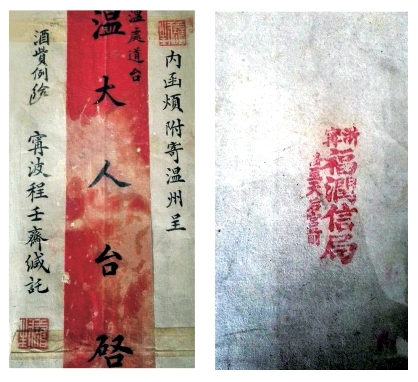 内函煩附寄温州呈
温處道台
温大人台啓
酒貲例給
甯波程壬齋緘託
福潤信局